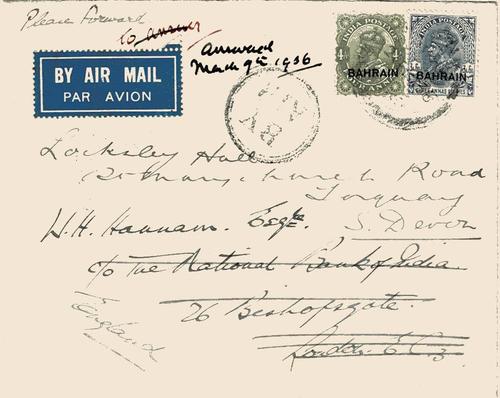 Please Forward
To answer
Answered
March 9th 1936
BY AIR MAIL
PAR AVION
INDIA POSTAGE
BAHRAIN
INDIA POSTAGE
BAHRAIN
Locksley Hall
Road
Torquay
W.H. Hannam. Esqre.
S. Devon
c/o The National Bank of India
26 Bishopsgate.
London. E.C.3.
England